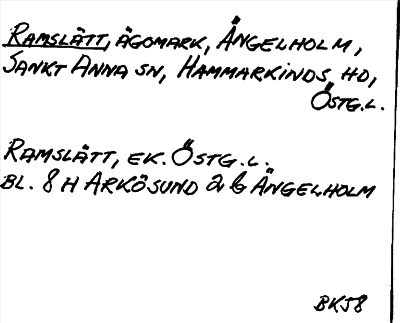 RAMSLÄTT, ÄGOMARK, ÄNGELHOLM,
SANKT ANNA SN, HAMMARKINDS HD,
ÖSTG.L.
RAMSLÄTT, EK. ÖSTG.L.
BL. 8 H ARKÖSUND 2 b ÄNGELHOLM
BKJ8